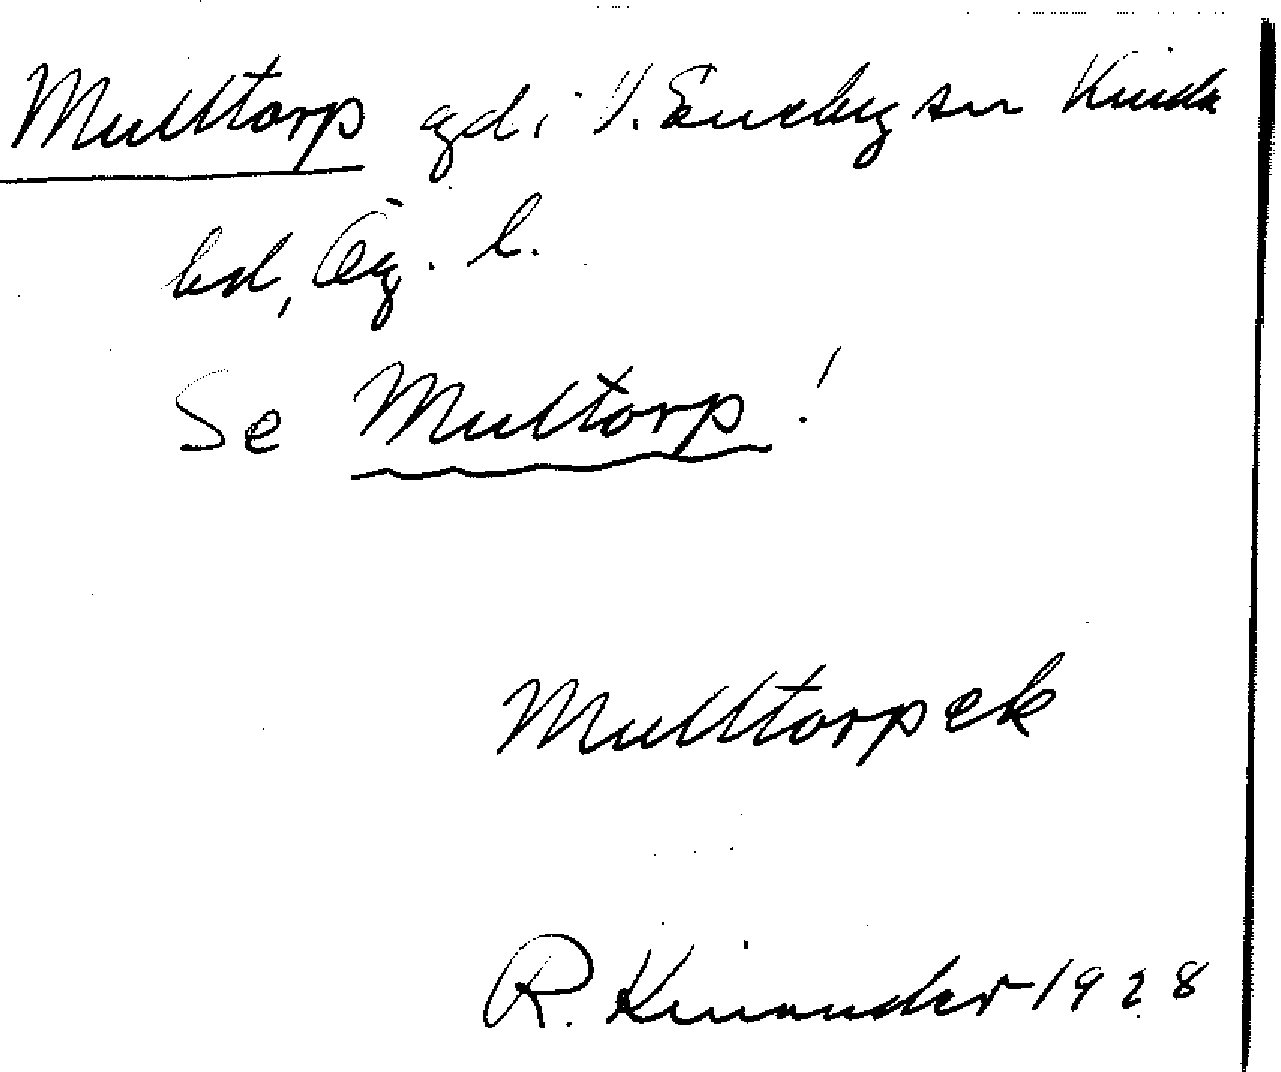 Mulltorp gd i V. Eneby sn Kinda
hd, Ög. l.
Se Multorp!
Mulltorp ek
R. Kinander 1928